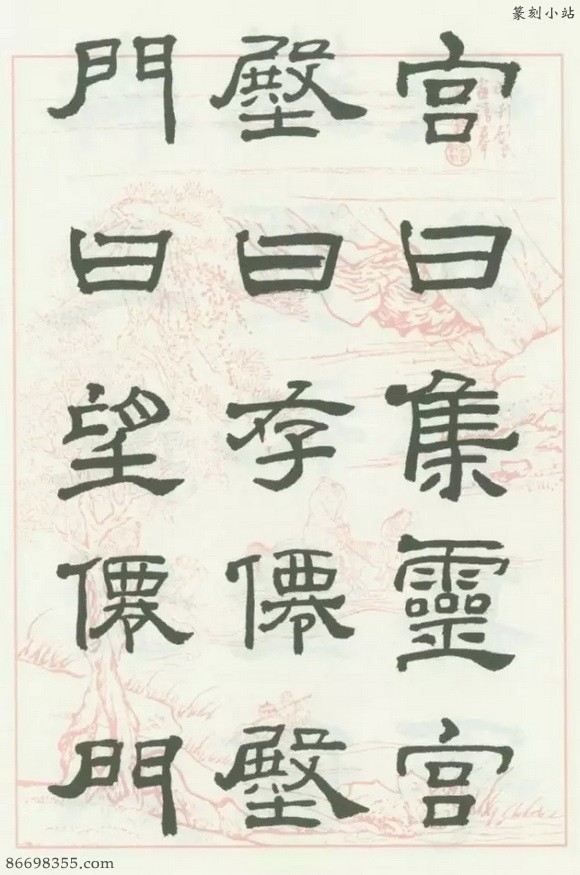 篆刻小站
宮曰集靈宮
壂曰存僊壂
門曰望僊門
86698355.com